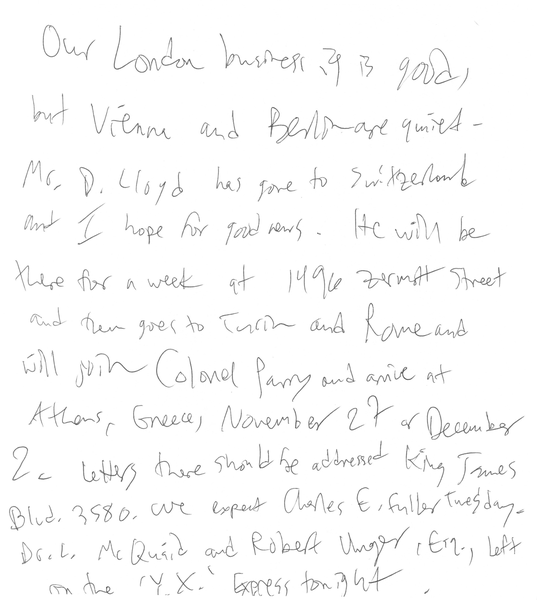 Our London business is good,
but Vienna and Berlin are quiet -
Mr. D. Lloyd has gone to Switzerland
and I hope for good news. He will be
there for a week at 1496 Zermott Street
and then goes to Turin and Rome and
will join Colonel Parry and arrive at
Athens, Greece, November 27 or December
2. Letters there should be addressed King James
Blvd. 3580. We expect Charles E. Fuller Tuesday.
Dr. L. McQuaid and Robert Unger, Esq., left
on the 'Y.X.' Express tonight.